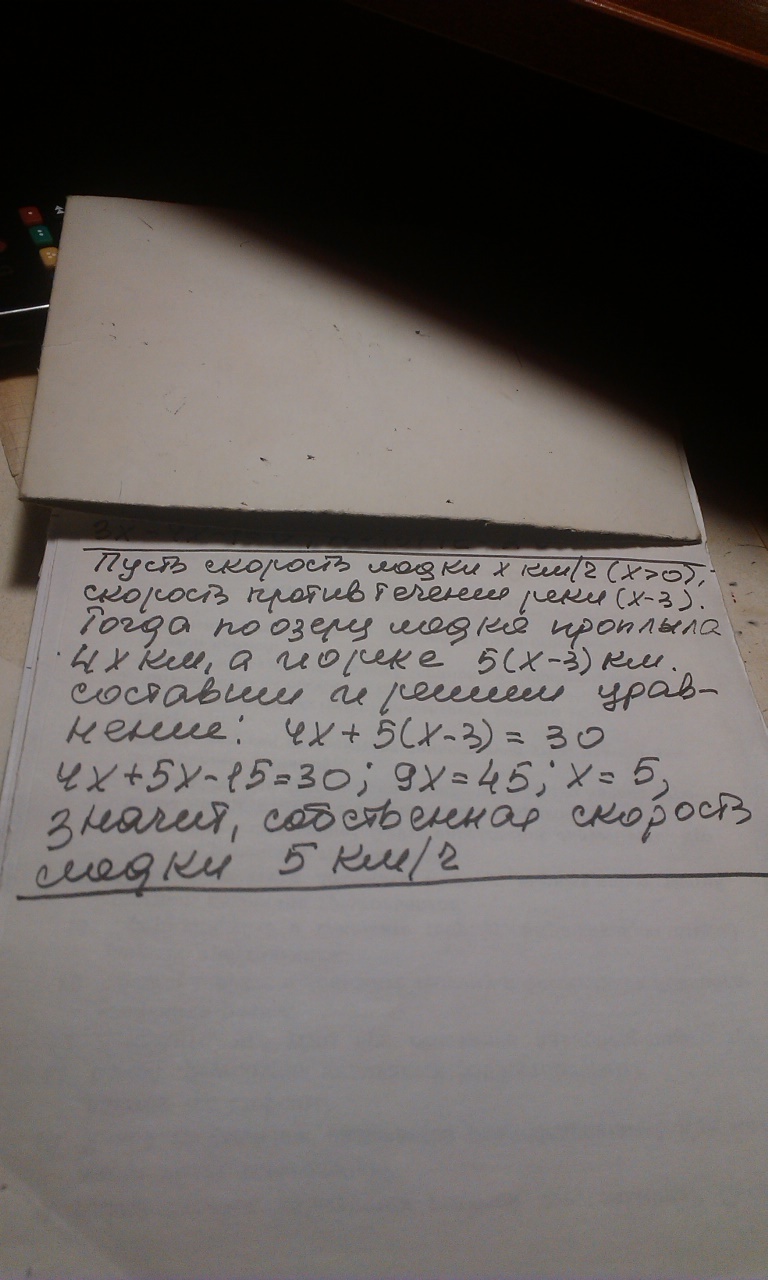 Пусть скорость лодки х км/ч (х>0),
скорость против течения реки (х-3).
Тогда по озеру лодка проплыла
4х км, а по реке 5(х-3) км.
составим и решим урав-
нение: 4х + 5(х-3) = 30
4х+5х-15=30; 9х=45; х=5,
значит, собственная скорость
лодки 5 км/ч